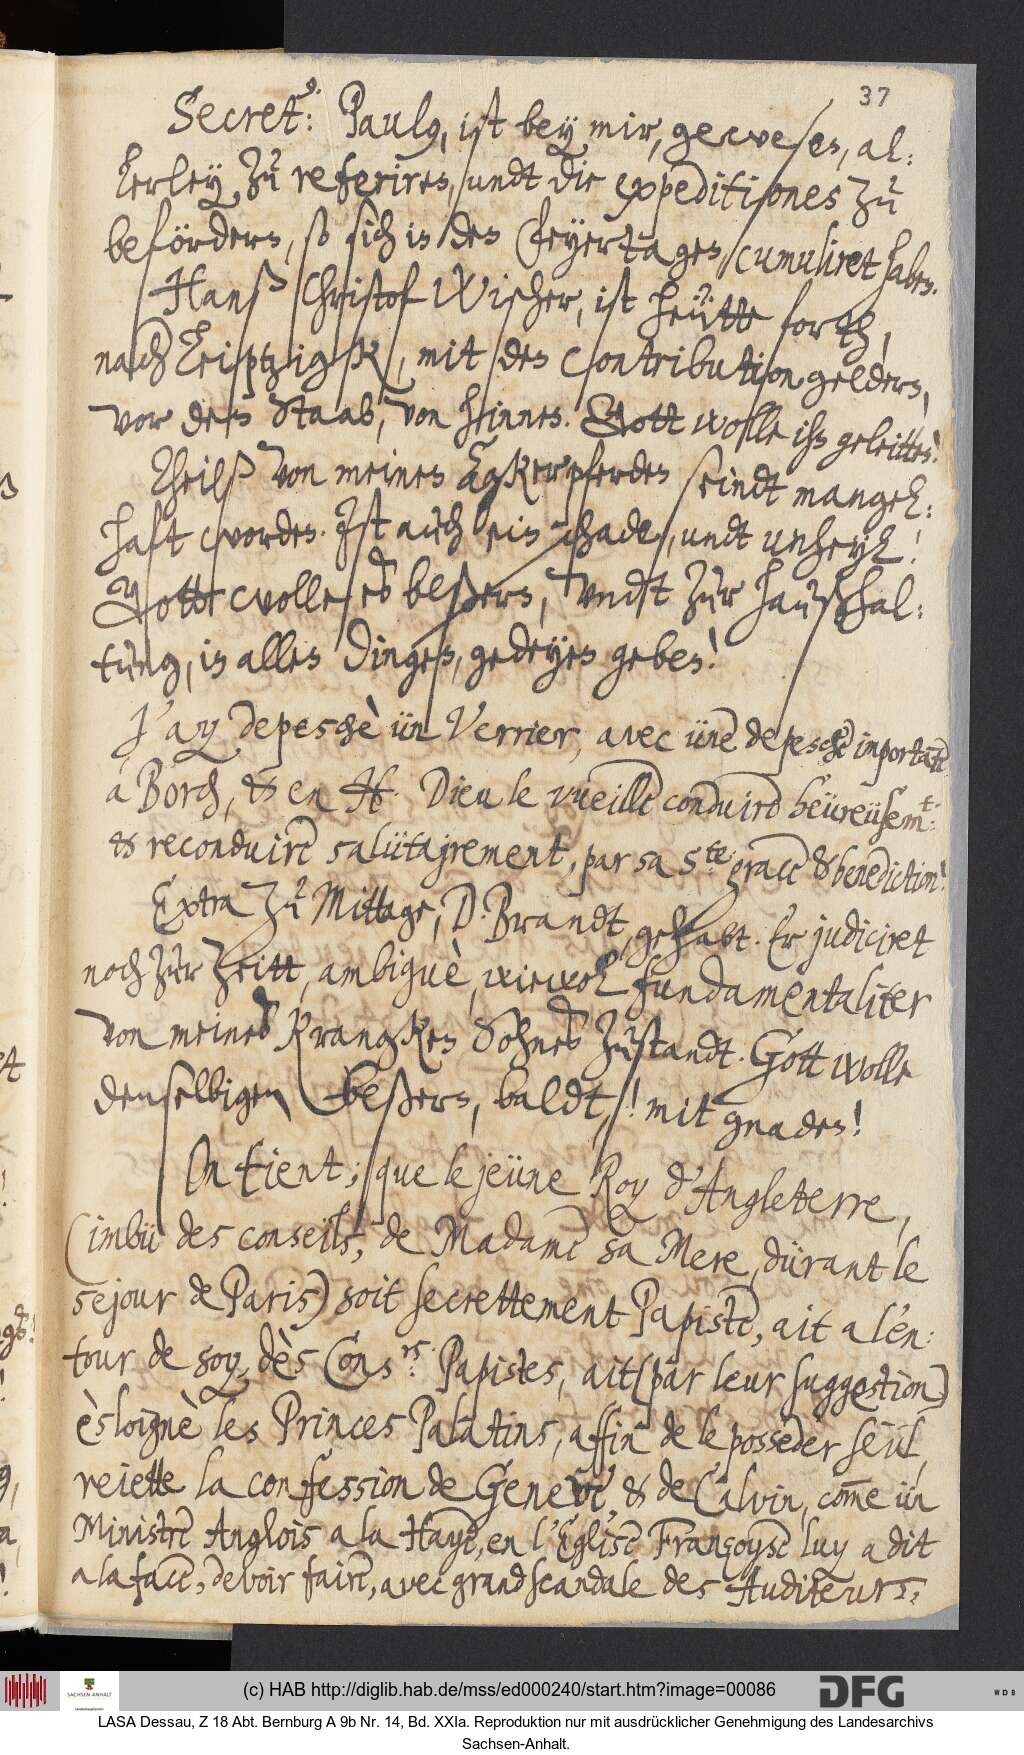 37
Secret: Paulus, ist bey mir, gewesen, al-
lerley zu referiren, undt die expeditiones zu
befördern, so sich in den feyertagen, cumuliret haben.
Hanß Christof Wischer, ist heütte forth,
nach Leiptzigk, mit den Contributiongeldern,
vor den Staab, von hinnen. Gott wolle ihn geleitten!
Theilß von meinen Agkerpferden seindt mangel-
haft worden. Ist auch ein schade, undt unheyl!
Gott wolle es beßern, undt zur haußhal-
tung, in allen dingen, gedeyen geben!
J'ay depeschè ün Verrier, avec üne depesche importante
a Borch, & en H. Dieu le vueille conduire heüreüsem.t
& reconduire salütairement, par sa S.te grace & benediction!
Extra zu Mittage, D. Brandt, gehabt. Er judiciret
noch zur zeitt, ambiguè, wiewol fundamentaliter
von meines Krangken Sohnes zustandt. Gott wolle
denselbigen beßern, baldt,! mit gnaden!
On tient; que le jeüne Roy d'Angleterre,
(imbü des conseils, de Madame sa Mere, dürant le
sejour de Paris) soit secrettement Papiste, ait a l'en-
tour de soy, dès Cons.rs Papistes, ait (par leur suggestion)
èsloignè les Princes Palatins, affin de le posseder seül,
reiette la confession de Geneve, & de Calvin, come ün
Ministre Anglois a la Haye, en l'Eglise Françoyse luy a dit
a la face, devoir faire, avec grand scandale des Auditeurs,
(c) HAB http://diglib.hab.de/mss/ed000240/start.htm?image=00086
SACHSEN-ANHALT
DFG
WDB
LASA Dessau, Z 18 Abt. Bernburg A 9b Nr. 14, Bd. XXIa. Reproduktion nur mit ausdrücklicher Genehmigung des Landesarchivs
Sachsen-Anhalt.